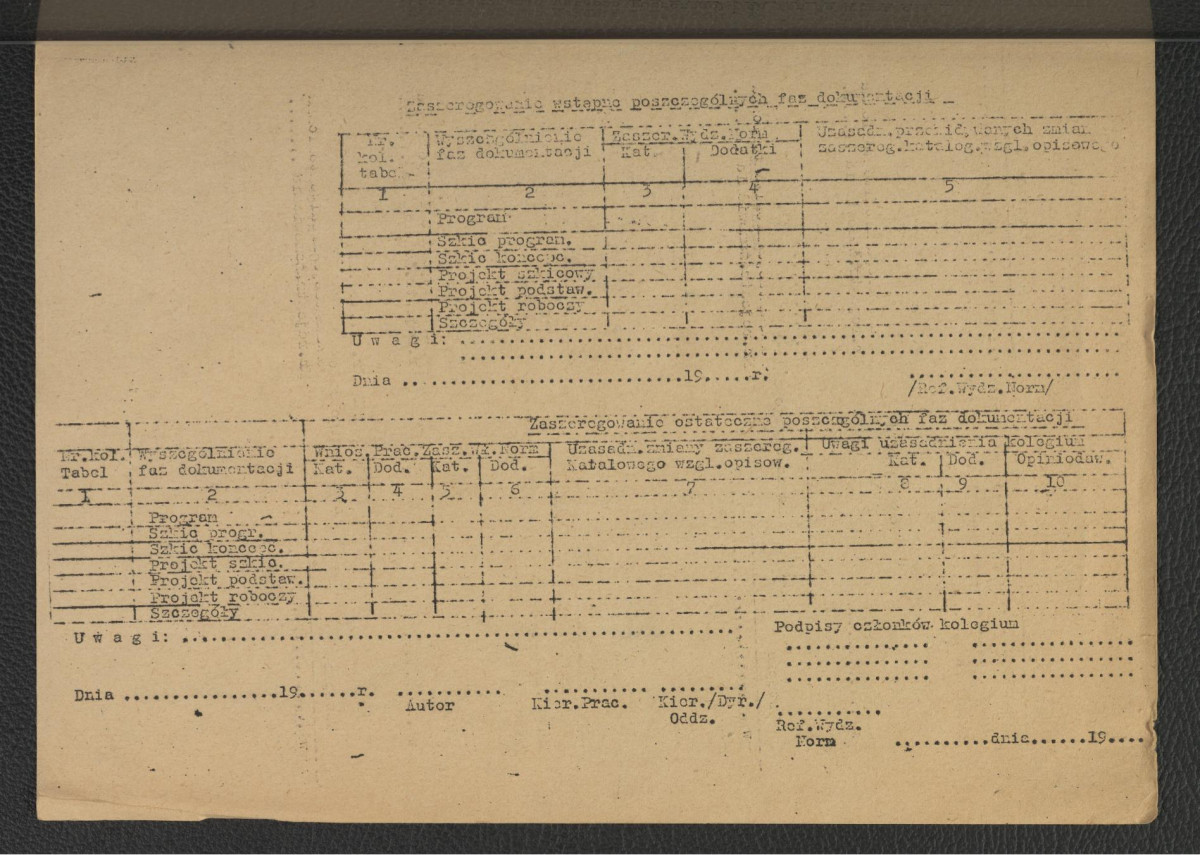 Zaszeregowanie wstępne poszczególnych faz dokumentacji
Nr. Wyszególnienie Zaszer.Wydz.Norm Uzasadn.przewidywanych zmian
kol. faz dokumentacji Kat. Dodatki zaszereg.katalog.wzgl.opisowego
tabel
1 2 3 4 5
Program
Szkic program.
Szkic koncepc.
Projekt szkicowy
Projekt podstaw.
Projekt roboczy
Szczegóły
U w a g i:
Dnia ..............................19.....r.
/Ref.Wydz.Norm/
Zaszeregowanie ostateczne poszczególnych faz dokumentacji
Nr.kol. Wyszególnienie Wnios.Prac.Zasz.Wł.Norm Uzasadn.zmiany zaszereg. Uwagi uzasadnienia kolegium
Tabel faz dokumentacji Kat. Dod. Kat. Dod. Katalowego wzgl.opisow. Kat. Dod. Opiniodaw.
1 2 3 4 5 6 7 8 9 10
Program
Szkic progr.
Szkic koncepc.
Projekt szkic.
Projekt podstaw.
Projekt roboczy
Szczegóły
U w a g i:
Podpisy członków kolegium
Dnia .................19......r.
Autor Kier.Prac. Kier./Dyr./
Oddz.
Ref.Wydz.
Norm ..........dnia......19....